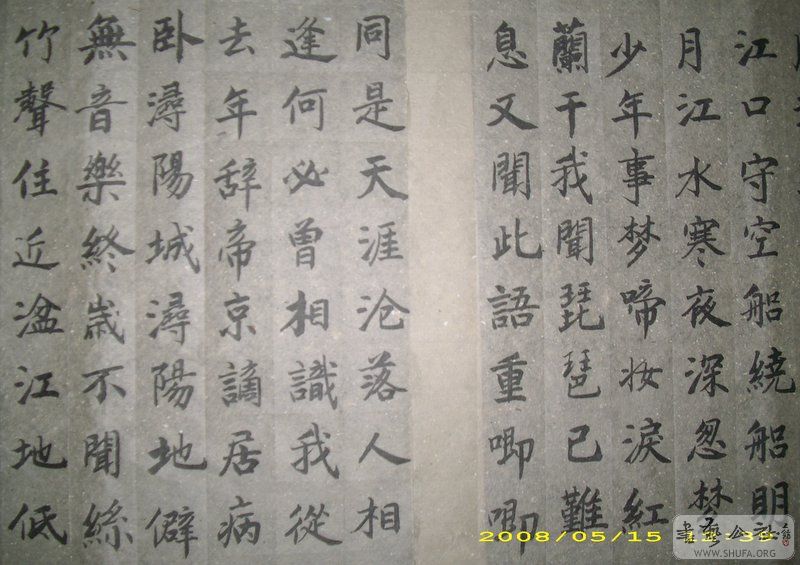 江口守空船繞船明
月江水寒夜深忽梦
少年事梦啼妆淚紅
蘭干我聞琵琶已難
息又聞此語重唧唧
同是天涯沧落人相
逢何必曾相識我從
去年辞帝京謫居病
卧潯陽城潯陽地僻
無音樂終歲不聞絲
竹聲住近湓江地低
2008/05/15
WWW.SHUFA.ORG